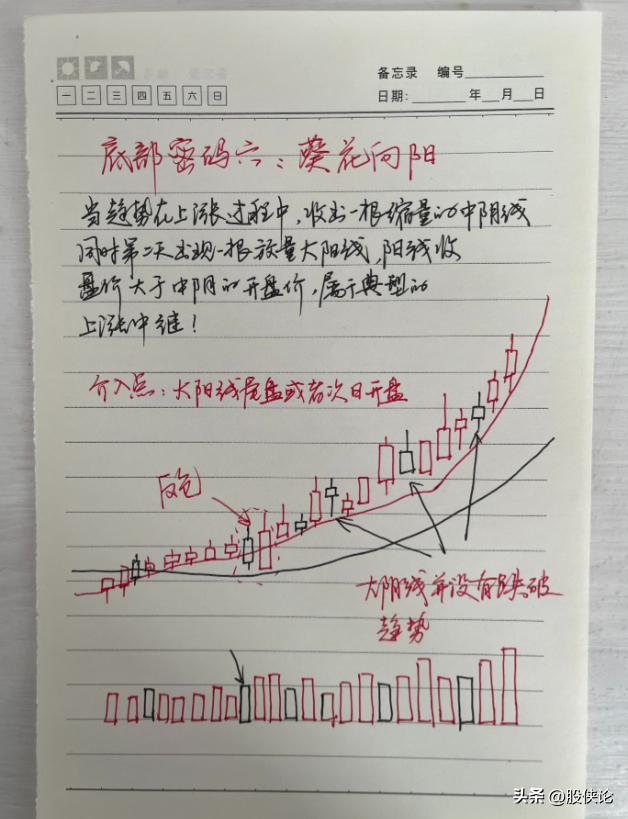 备忘录 编号
一 二 三 四 五 六 日
日期: 年 月 日
底部密码六：葵花向阳
当趋势在上涨过程中，收出一根缩量的中阴线
同时第二天出现一根放量大阳线，阳线收
盘价大于中阴的开盘价，属于典型的
上涨中继！
介入点：大阳线尾盘或者次日开盘
反包
大阴线并没有跌破
趋势
头条 @股侠论